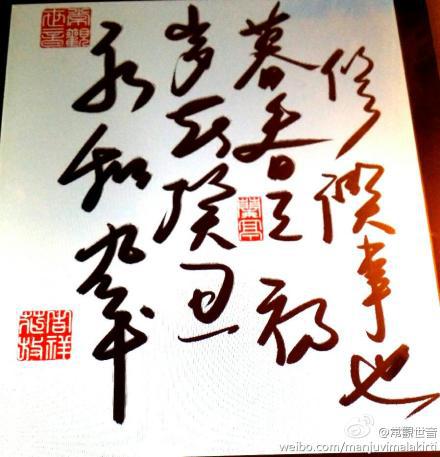 常觀世音
永和九年
岁在癸丑
暮春之初
修禊事也
蘭亭
@常觀世音
weibo.com/manjuvimalakirti